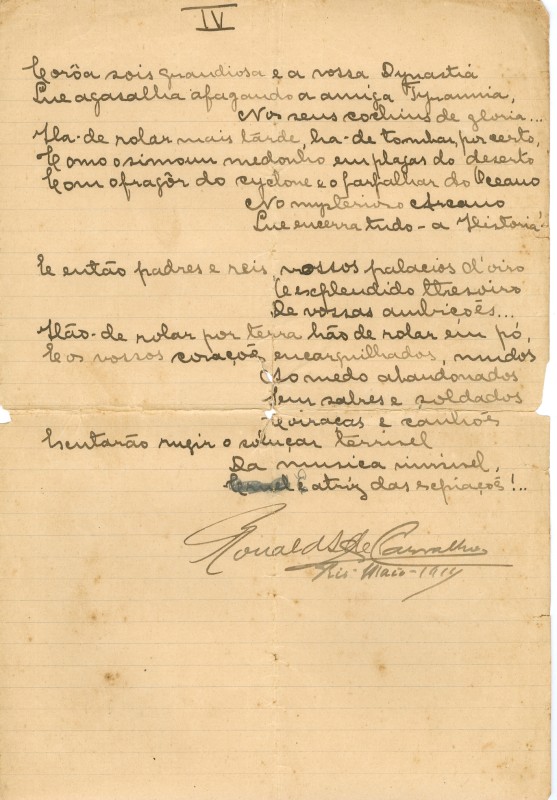 IV
Corôa sois grandiosa e a vossa Dynastia
Que agasalha afagando a amiga Tyrannia,
Nos seus cochins de gloria...
Ha-de rolar mais tarde, ha-de tombar, por certo,
Como o simoun medonho em plagas do deserto
Com o fragôr do cyclone e o farfalhar do Oceano
No mysterioso Arcano
Que encerra tudo - a Historia!
E então padres e reis, vossos palacios d'oiro
E esplendido thesoiro
De vossas ambicoẽs...
Hão-de rolar por terra hão de rolar em pó,
E os vossos coraçoẽs encarquilhados, mudos
Ao medo abandonados
Sem sabres e soldados
Coiraças e canhoẽs
Escutarão rugir o soluçar terrivel
Da musica invisivel,
Cruel e atriz das expiaçoẽs!..
Ronald de Carvalho
Rio-Maio-1914